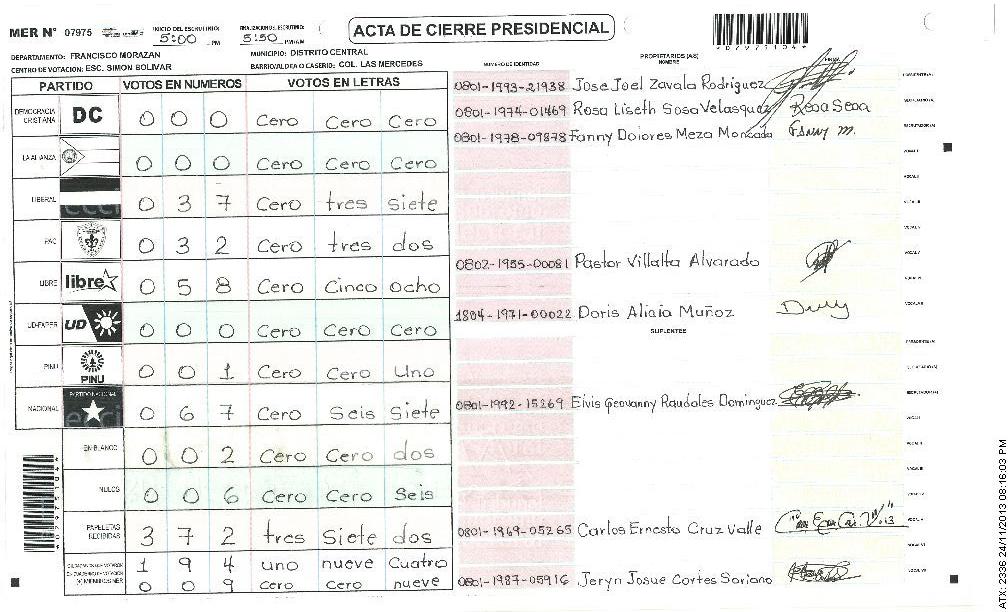 MER N° 07975 INICIO DEL ESCRUTINIO: 5:00 PM FINALIZACION ESCRUTINIO: 5:50 PM/AM ACTA DE CIERRE PRESIDENCIAL
DEPARTAMENTO: FRANCISCO MORAZAN MUNICIPIO: DISTRITO CENTRAL
CENTRO DE VOTACION: ESC. SIMON BOLIVAR BARRIO/ALDEA O CASERIO: COL. LAS MERCEDES
PARTIDO VOTOS EN NUMEROS VOTOS EN LETRAS
DEMOCRACIA CRISTIANA DC 0 0 0 Cero Cero Cero
LA ALIANZA 0 0 0 Cero Cero Cero
LIBERAL 0 3 7 Cero tres Siete
PAC 0 3 2 Cero tres dos
LIBRE libre 0 5 8 Cero Cinco Ocho
UD-FAPER UD 0 0 0 Cero Cero Cero
PINU PINU 0 0 1 Cero Cero Uno
NACIONAL PARTIDO NACIONAL 0 6 7 Cero Seis Siete
EN BLANCO 0 0 2 Cero Cero dos
NULOS 0 0 6 Cero Cero Seis
PAPELETAS RECIBIDAS 3 7 2 tres Siete dos
1 9 4 uno nueve Cuatro
(+) MIEMBROS MER 0 0 9 cero cero nueve
NUMERO DE IDENTIDAD PROPIETARIOS (AS) NOMBRE FIRMA
0801-1993-21938 Jose Joel Zavala Rodriguez
0801-1974-01469 Rosa Liseth Sosa Velasquez Rosa Sosa
0801-1978-09878 Fanny Dolores Meza Moncada Fanny M.
0802-1955-00081 Pastor Villalta Alvarado
1804-1971-00022 Doris Alicia Muñoz
SUPLENTES
0801-1992-15269 Elvis Geovanny Raudales Dominguez
0801-1969-05265 Carlos Ernesto Cruz Valle
0801-1987-05916 Jeryn Josue Cortes Soriano
ATX: 2336 24/11/2013 08:16:03 PM